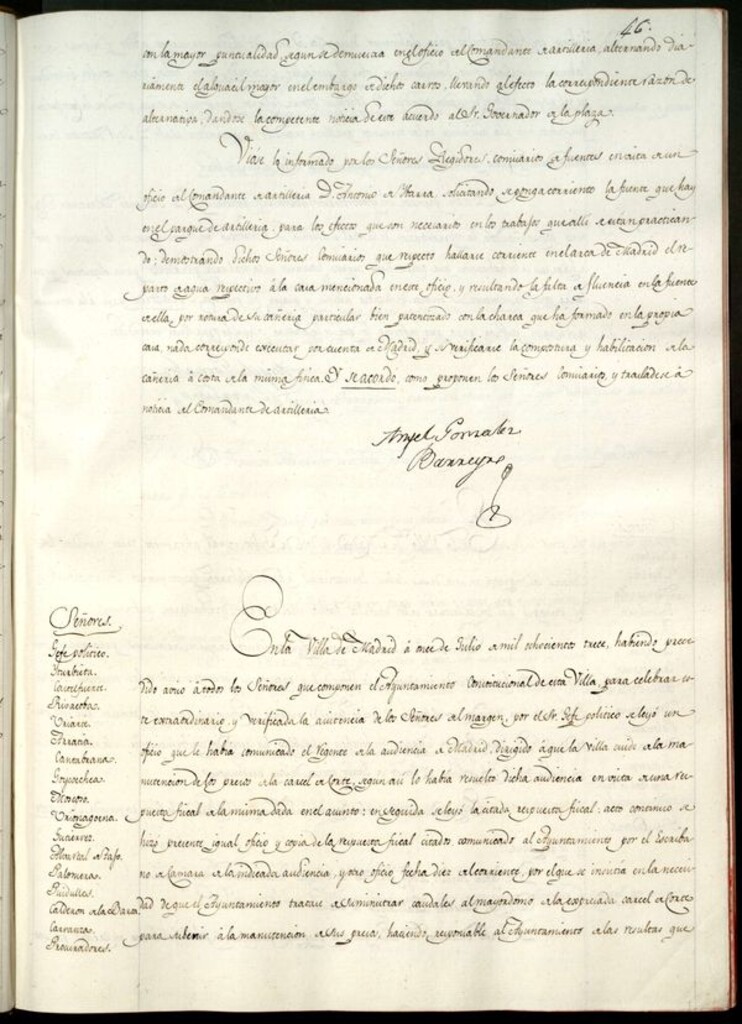 46.
con la mayor puntualidad, segun se demuestra en el oficio del Comandante de artilleria, alternando dia-
riamente el alguacil mayor en el embargo de dichos carros, llevando al efecto la correspondiente razon de
alternativa, dandose la competente noticia de este acuerdo al Sr. Governador de la plaza.
Viose lo informado por los Señores Regidores, comisarios de fuentes en vista de un
oficio del Comandante de artilleria D. Antonio de Ibarra solicitando se ponga corriente la fuente que hay
en el parque de artilleria, para los efectos que son necesarios en los trabajos que alli se estan practican-
do; demostrando dichos Señores Comisarios que respecto hallarse corriente en el arca de Madrid el re-
parto de agua respectivo á la casa mencionada en este oficio, y resultando la falta de fluencia en la fuente
de ella, por rotura de su cañeria particular bien patentizado con la charca que ha formado en la propia
casa, nada corresponde executar por cuenta de Madrid, y si verificarse la compostura y habilitacion de la
cañeria á costa de la misma finca. Y se acordo, como proponen los Señores Comisarios, y trasladese á
noticia del Comandante de artilleria.
Angel Gonzalez
Barreyro
Señores.
Gefe politico.
Iturbieta.
Castelfuerte.
Rivacoba.
Uriarte.
Arratia.
Cantabrana.
Goycoechea.
Moreno.
Urionagoena.
Gutierrez.
Palomeras.
Quidulles.
Calderon de la Barca.
Carranza.
Procuradores.
En la Villa de Madrid á once de Julio de mil ochocientos trece, habiendo prece-
dido aviso á todos los Señores que componen el Ayuntamiento Constitucional de esta Villa, para celebrar es-
te extraordinario, y verificada la asistencia de los Señores del margen, por el Sr. Gefe politico se leyó un
oficio que le habia comunicado el Regente de la audiencia de Madrid, dirigido á que la Villa cuide de la ma-
nutencion de los presos de la carcel de Corte, segun asi lo habia resuelto dicha audiencia en vista de una res-
puesta fiscal de la misma dada en el asunto: en seguida se leyó la citada respuesta fiscal: acto continuo se
hizo presente igual oficio y copia de la respuesta fiscal citados, comunicado al Ayuntamiento por el Escriba-
no de Camara de la indicada audiencia, y otro oficio fecha diez del corriente, por el que se insistia en la necesi-
dad de que el Ayuntamiento tratase de suministrar caudales al mayordomo de la expresada carcel de Corte
para subvenir á la manutencion de sus presos, haciendo responsable al Ayuntamiento de las resultas que